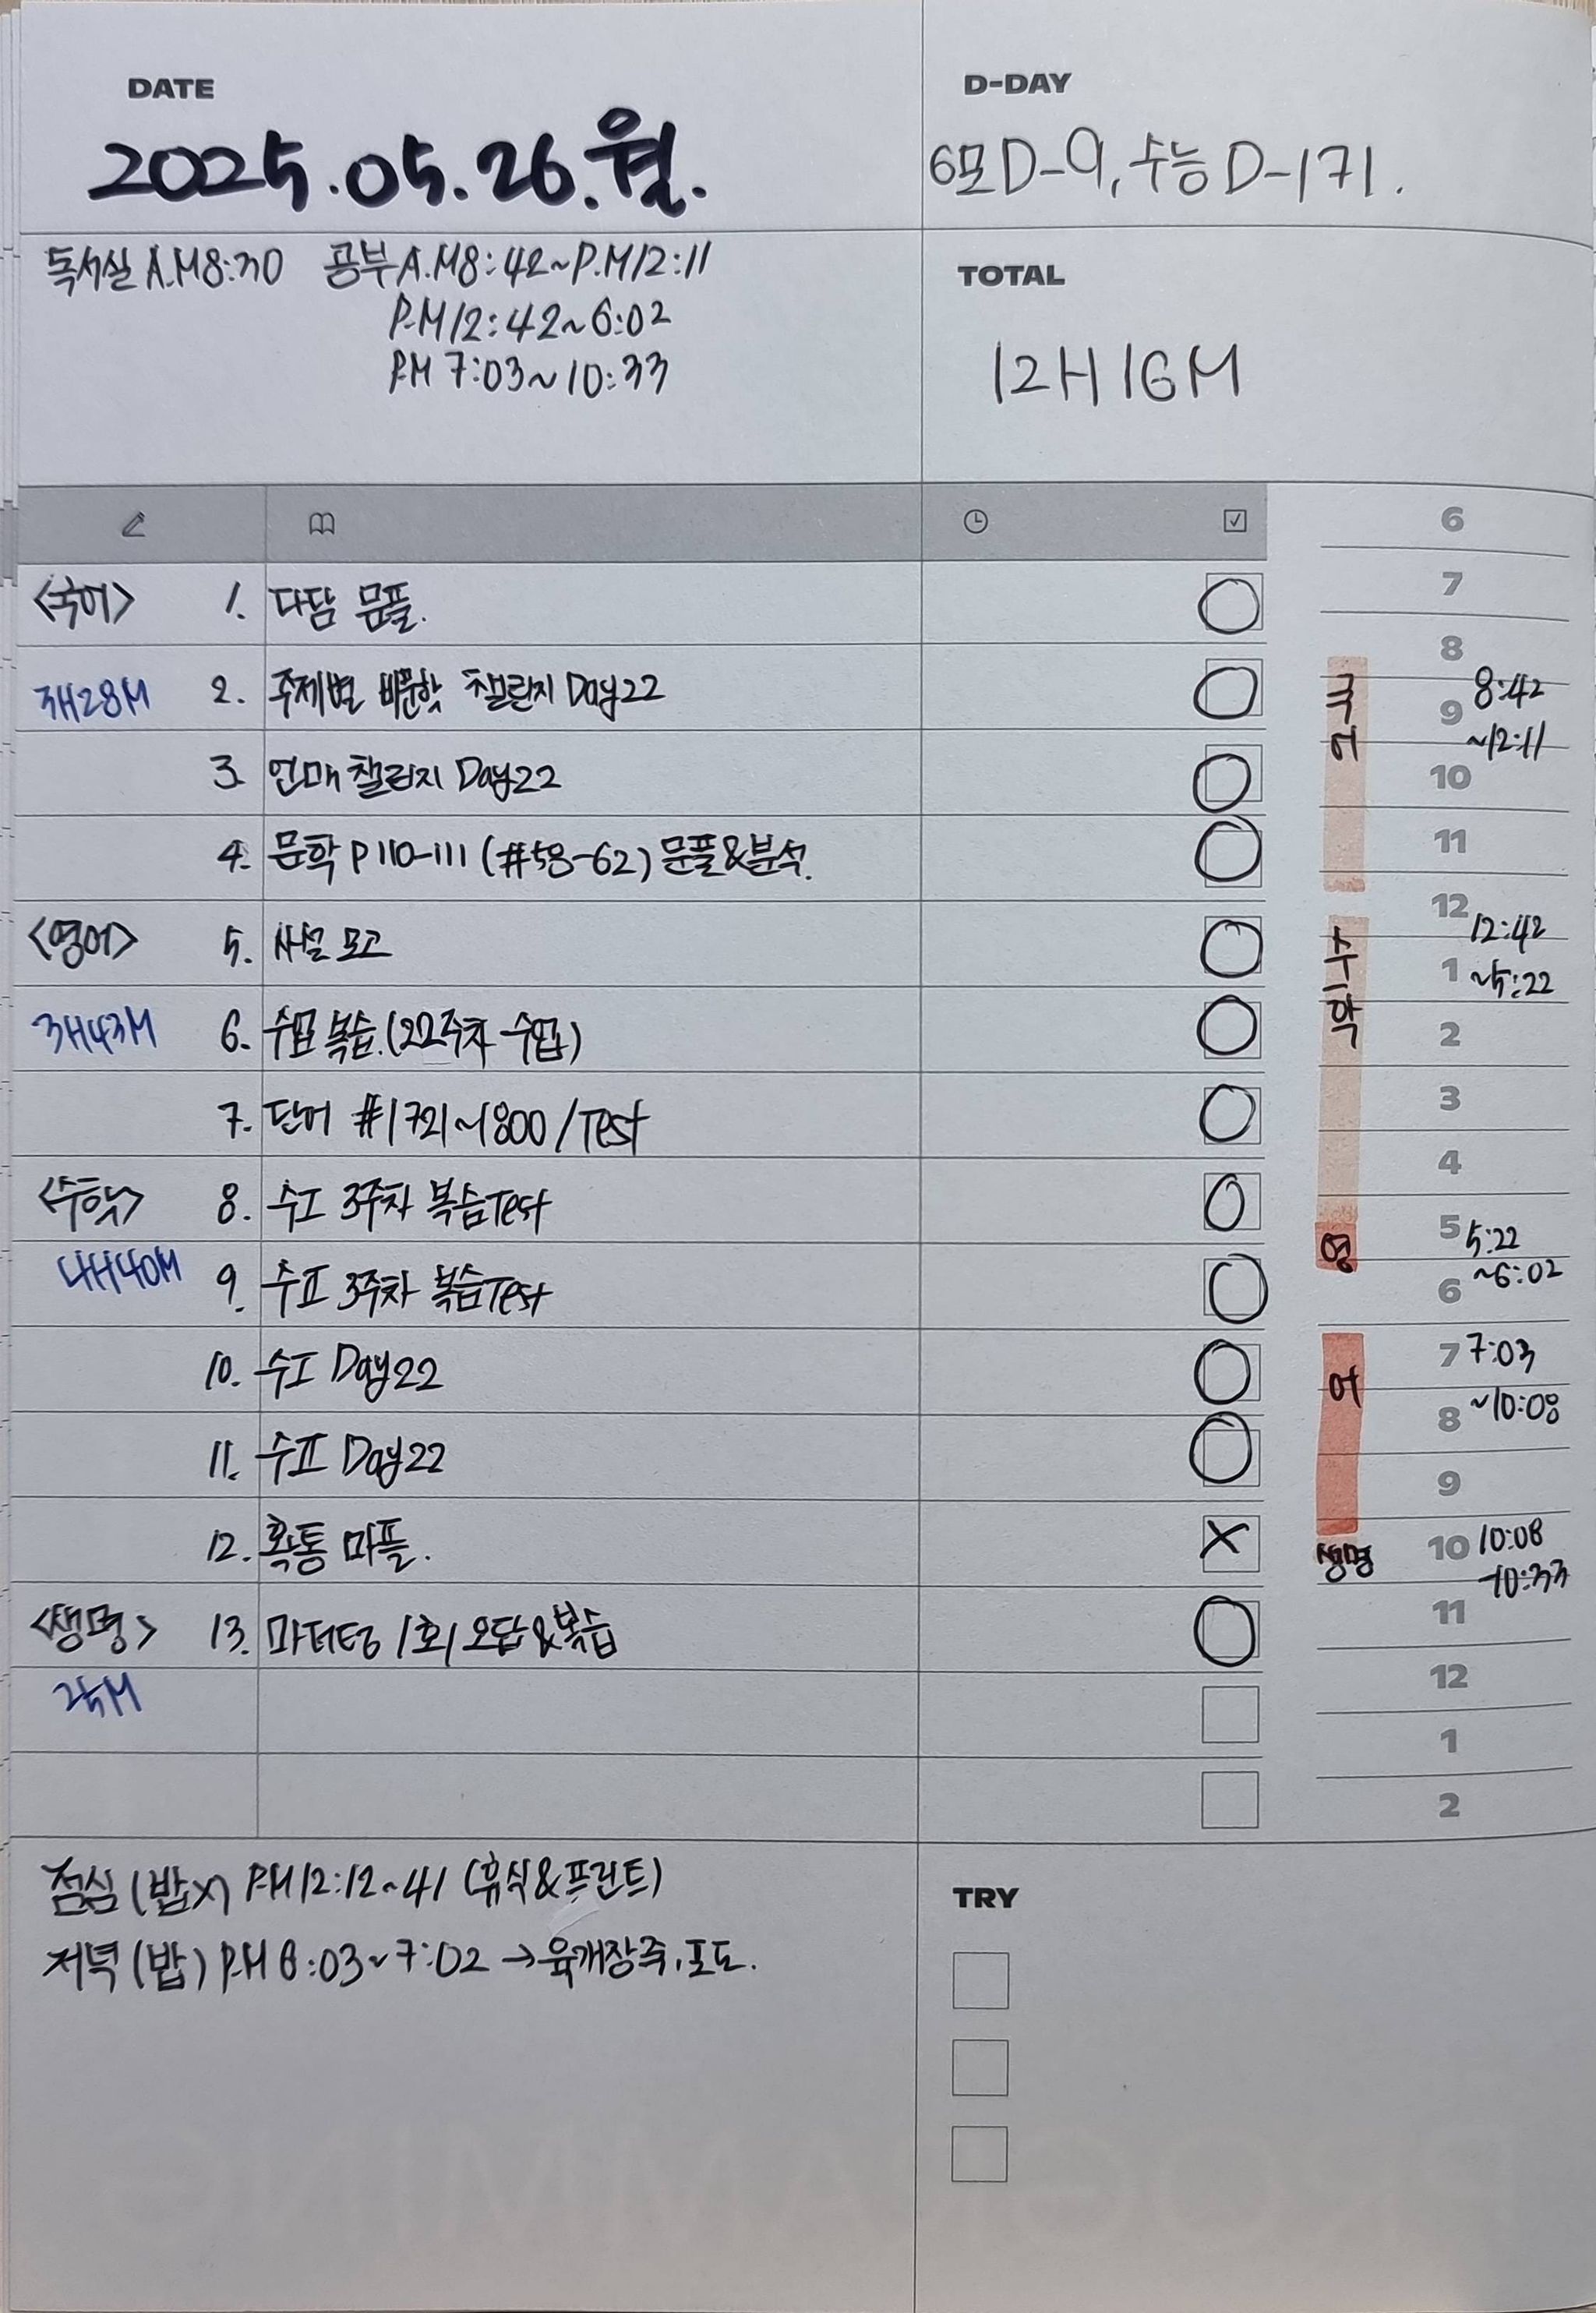 DATE
2025.05.26.월.
D-DAY
6모 D-9, 수능 D-171.
독서실 A.M8:30 공부 A.M8:42~P.M12:11
P.M12:42~6:02
P.M 7:03~10:33
TOTAL
12H 16M
<국어> 1. 다담 문풀.
3H28M 2. 주제별 비문학 챌린지 Day22
3. 언매 챌린지 Day22
4. 문학 P110-111 (#58-62) 문풀&분석.
<영어> 5. 사설 모고
3H43M 6. 수업 복습.(22주차 수업)
7. 단어 #1721~1800/Test
<수학> 8. 수I 3주차 복습Test
4H40M 9. 수II 3주차 복습Test
10. 수I Day22
11. 수II Day22
12. 확통 마플.
<생명> 13. 마더텅 1회 오답&복습
25M
6
7
8
국어 8:42
9 ~12:11
10
11
12 12:42
수학 1 ~5:22
2
3
4
영 5 5:22
6 ~6:02
어 7 7:03
8 ~10:08
9
생명 10 10:08
~10:33
11
12
1
2
점심 (밥X) P.M12:12~41 (휴식&프린트)
저녁 (밥) P.M 6:03~7:02 → 육개장죽, 포도.
TRY